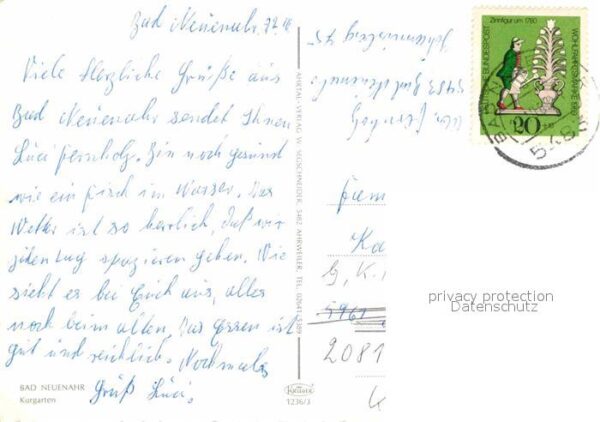 Bad Neuenahr,
Viele Herzliche Grüße aus
Bad Neuenahr sendet Ihnen
Lüci Pernholz. Bin noch gesund
wie ein Fisch im Wasser. Das
Wetter ist so herrlich, daß wir
jeden Tag spazieren gehen. Wie
sieht es bei Euch aus, alles
noch beim alten. Das Essen ist
gut und reichlich. Nochmals
Gruß Lüci.
BAD NEUENAHR
Kurgarten
1236/3
5483 Bad Neuenahr
Zinnfigur um 1780
DEUTSCHE BUNDESPOST
WOHLFAHRTSMARKE 1970
20
BAD
5483
Fam
Ka
G. K.
5961
2081
privacy protection
Datenschutz